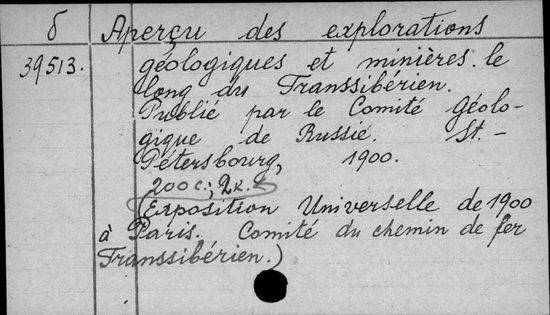 б Aperçu des explorations
39513. géologiques et minières le
long du Transsibérien.
Publié par le Comité Géolo-
gique de Russie. St.-
Pétersbourg, 1900.
200 с.; 2к.
(Exposition Universelle de 1900
à Paris. Comité du chemin de fer
Transsibérien.)